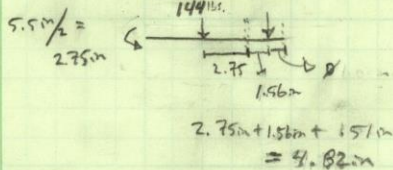 5.5in/2 =
2.75in
144 lbs.
2.75
1.56in
2.75in + 1.56in + .51in
= 4.82in